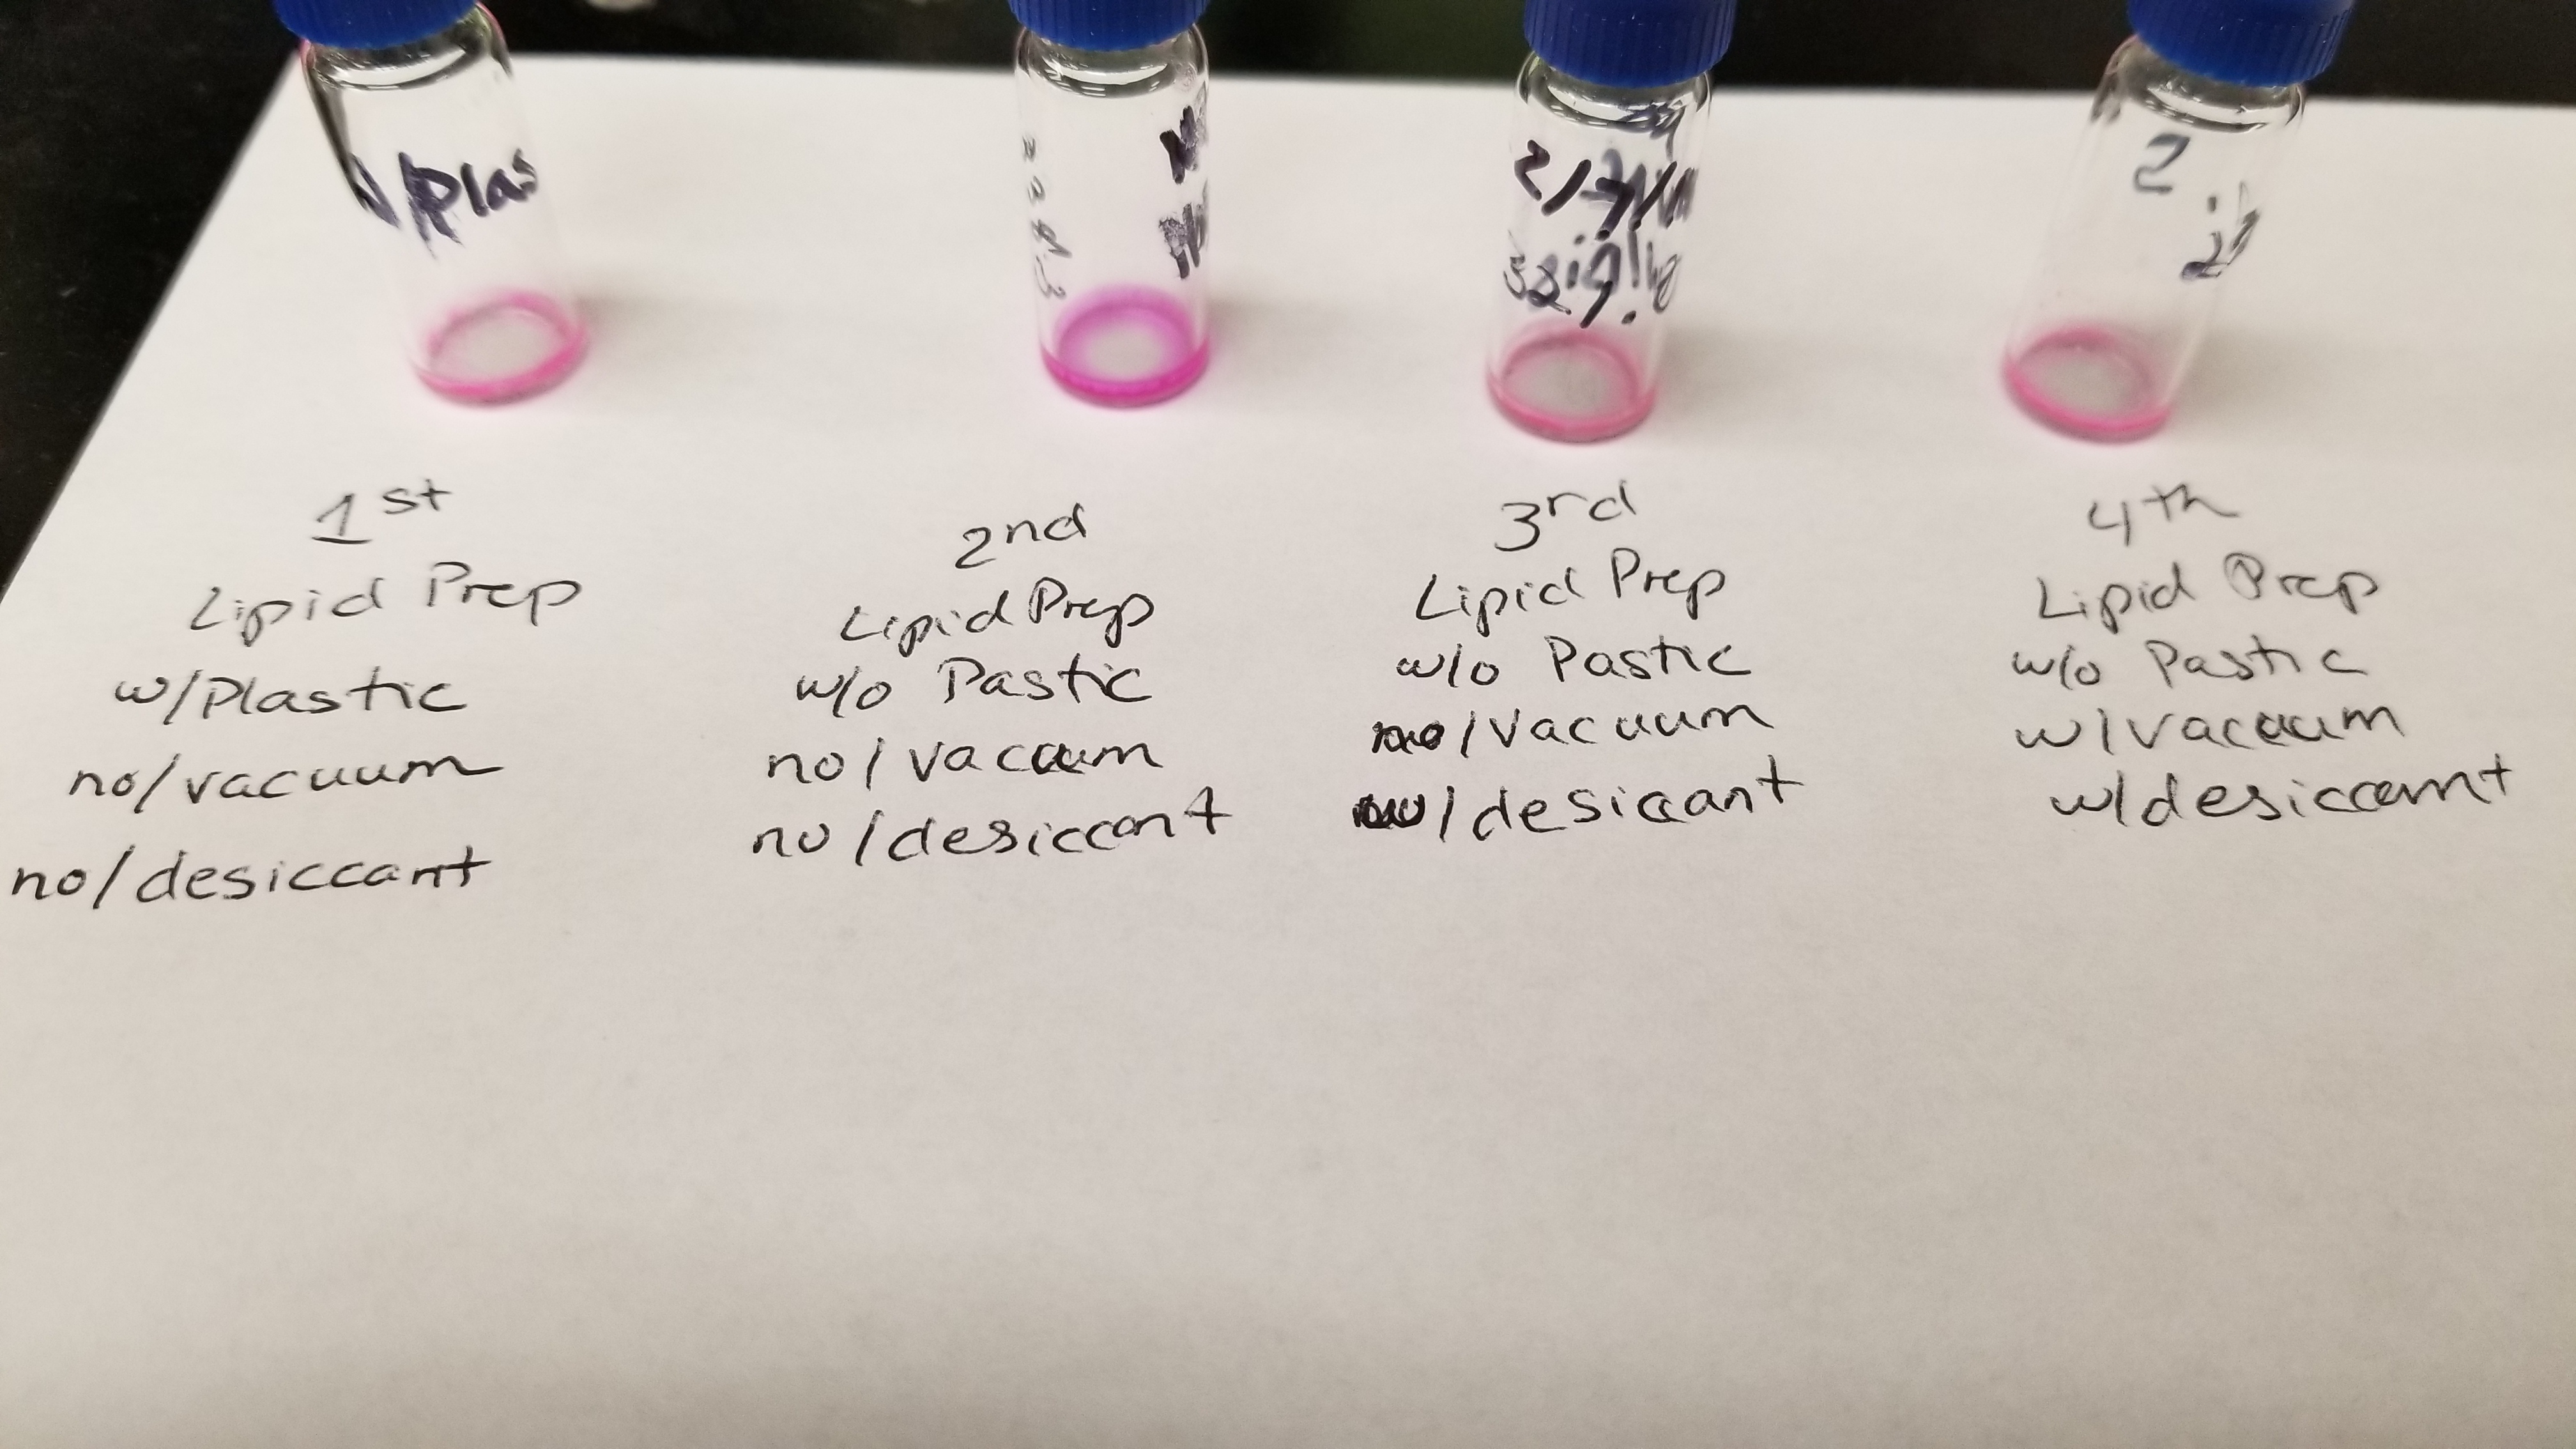 w/plas
1st
Lipid Prep
w/Plastic
no/vacuum
no/desiccant
2nd
Lipid Prep
w/o Pastic
no/vacuum
no/desiccant
3rd
Lipid Prep
w/o Pastic
no/vacuum
/desiccant
2
4th
Lipid Prep
w/o Pastic
w/vacuum
w/desiccant